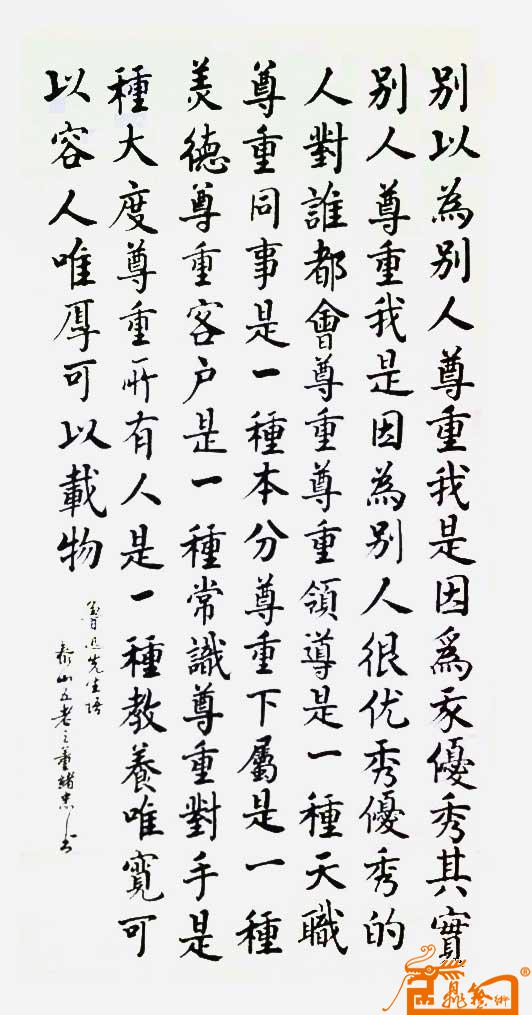 別以為別人尊重我是因爲我優秀其實
別人尊重我是因為別人很优秀優秀的
人對誰都會尊重尊重領導是一種天職
尊重同事是一種本分尊重下屬是一種
美德尊重客户是一種常識尊重對手是
種大度尊重所有人是一種教養唯寬可
以容人唯厚可以載物
魯迅先生語
泰山五老之董緒忠书